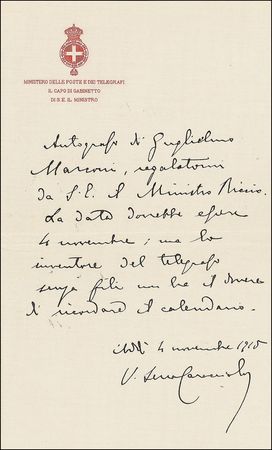 MINISTERO DELLE POSTE E DEI TELEGRAFI
IL CAPO DI GABINETTO
DI S. E. IL MINISTRO
Autografo di Guglielmo
Marconi, regalatomi
da S. E. il Ministro Riccio.
La data dovrebbe essere
4 novembre; ma lo
inventore del telegrafo
senza fili non ha il dovere
di ricordare il calendario.
4 novembre 1915
V.